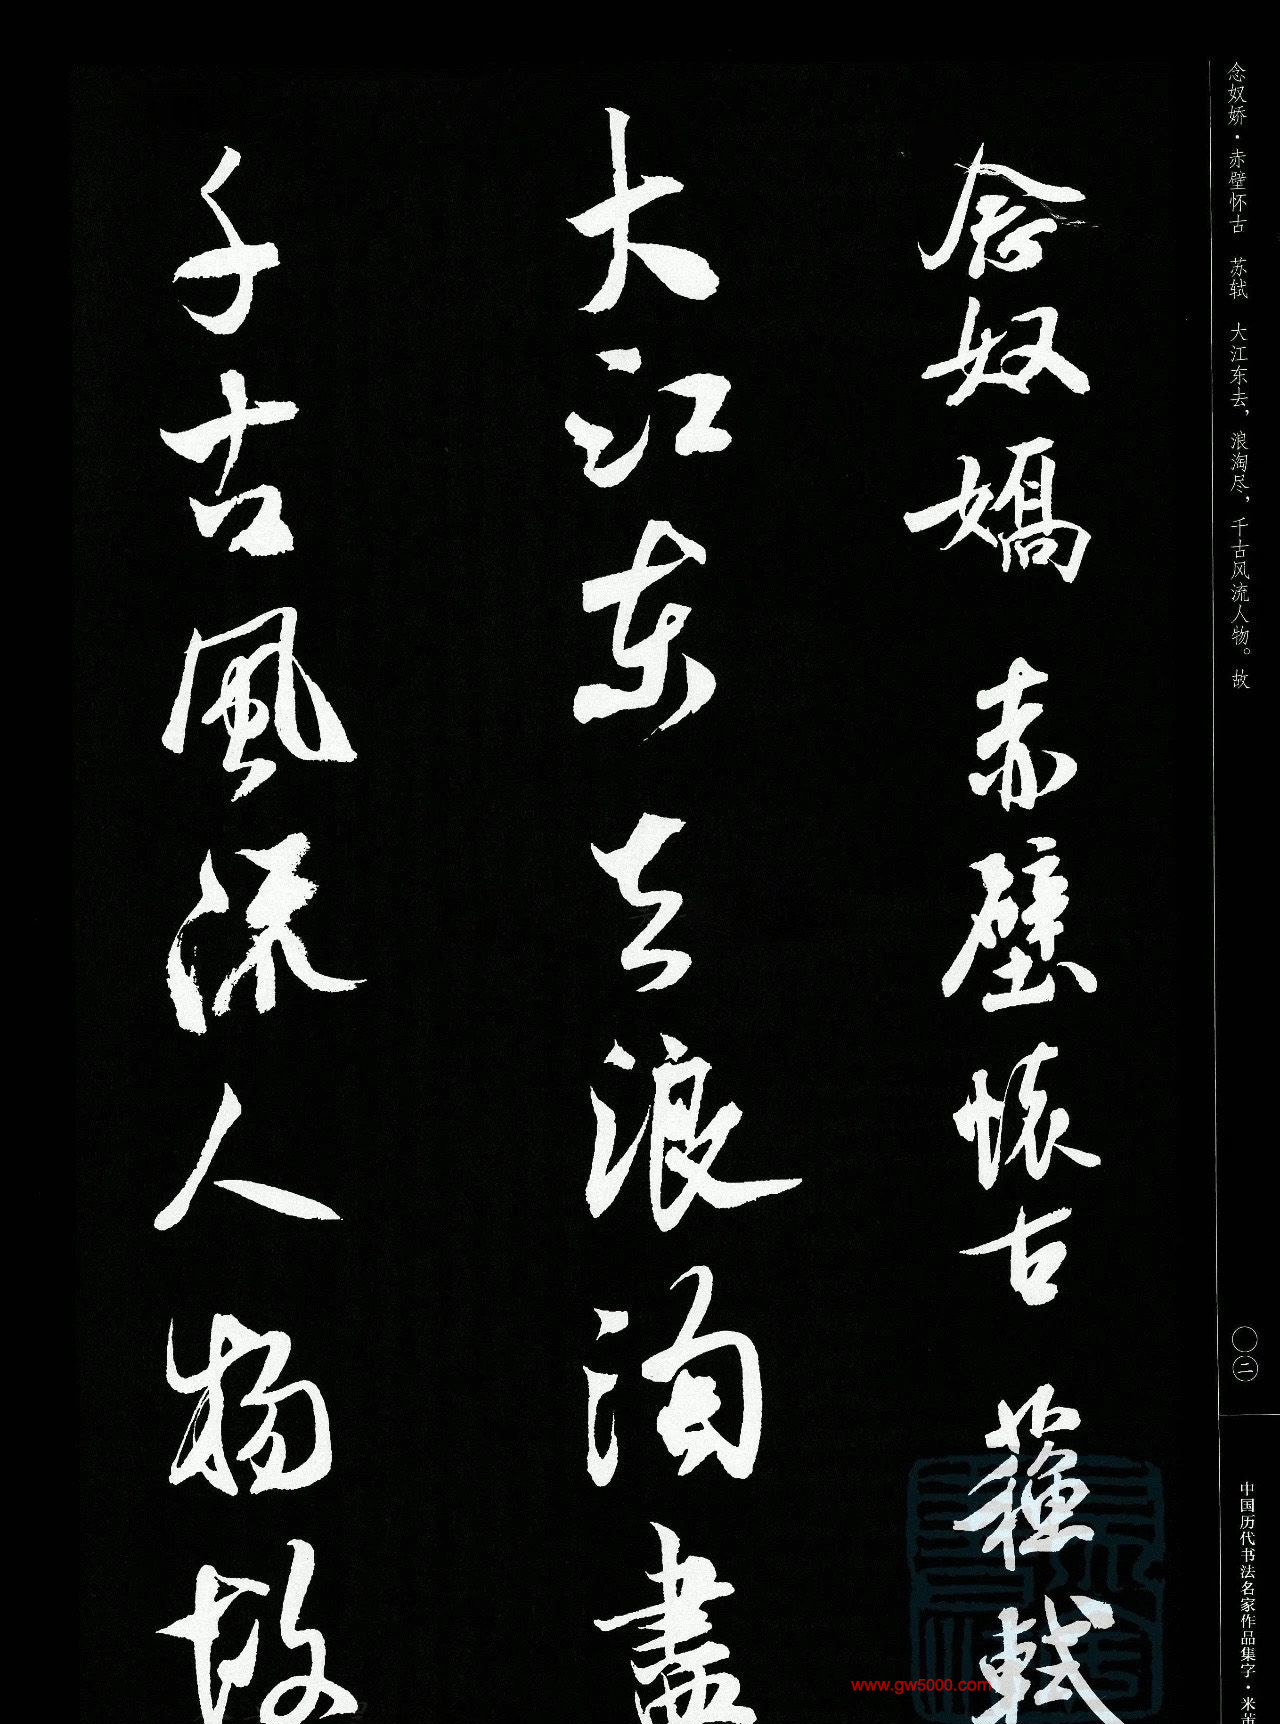 念奴娇·赤壁怀古　苏轼　大江东去，浪淘尽，千古风流人物。故
〇二
中国历代书法名家作品集字·米芾
念奴嬌 赤壁懷古 蘇軾
大江東去浪淘盡
千古風流人物故
www.gw5000.com